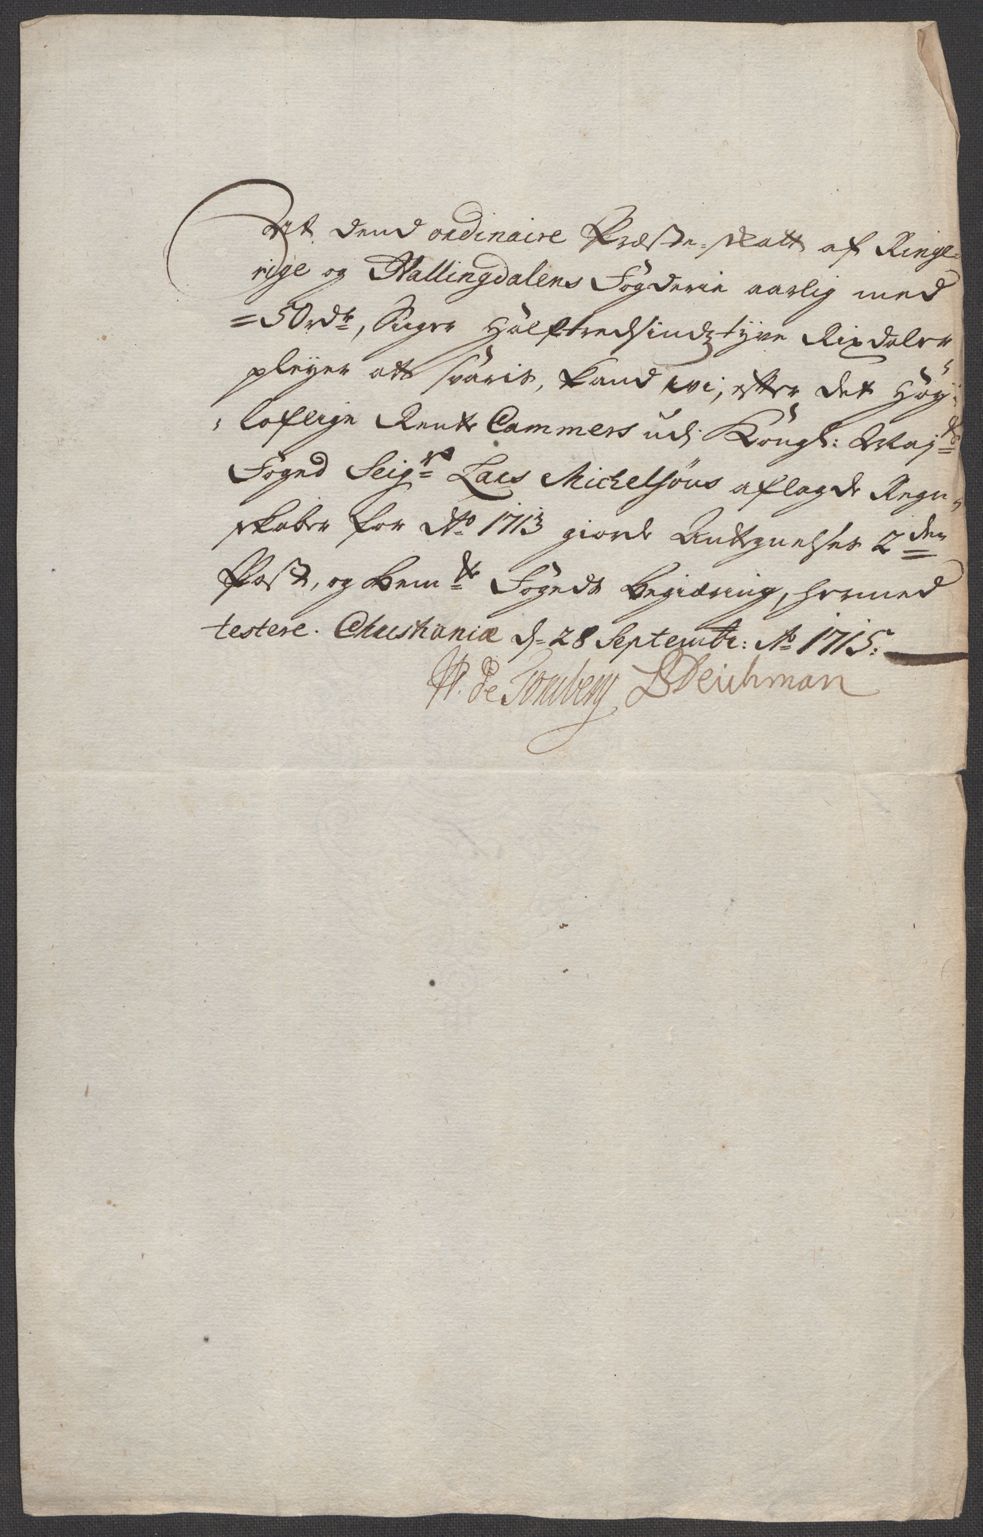 At dend ordinaire Præste-skatt af Ringe-
rige og Hallingdalens Fogderie aarlig med
=50 rdr, Siger Halftredsindztyve Rixdaler
pleyer att svaris, kand wi, efter det Høy-
loflige Rente Cammers udj Kongl: Maj:ts
Foged Seigr Lars Michelsøns aflagde Regn-
skaber for Ao 1713 giorde Antegnelses 2den
Post, og bemte Fogeds begiæring, hermed
testere. Christianiæ d= 28 Septembr: Ao 1715.
W. de Tonsberg BDeichman